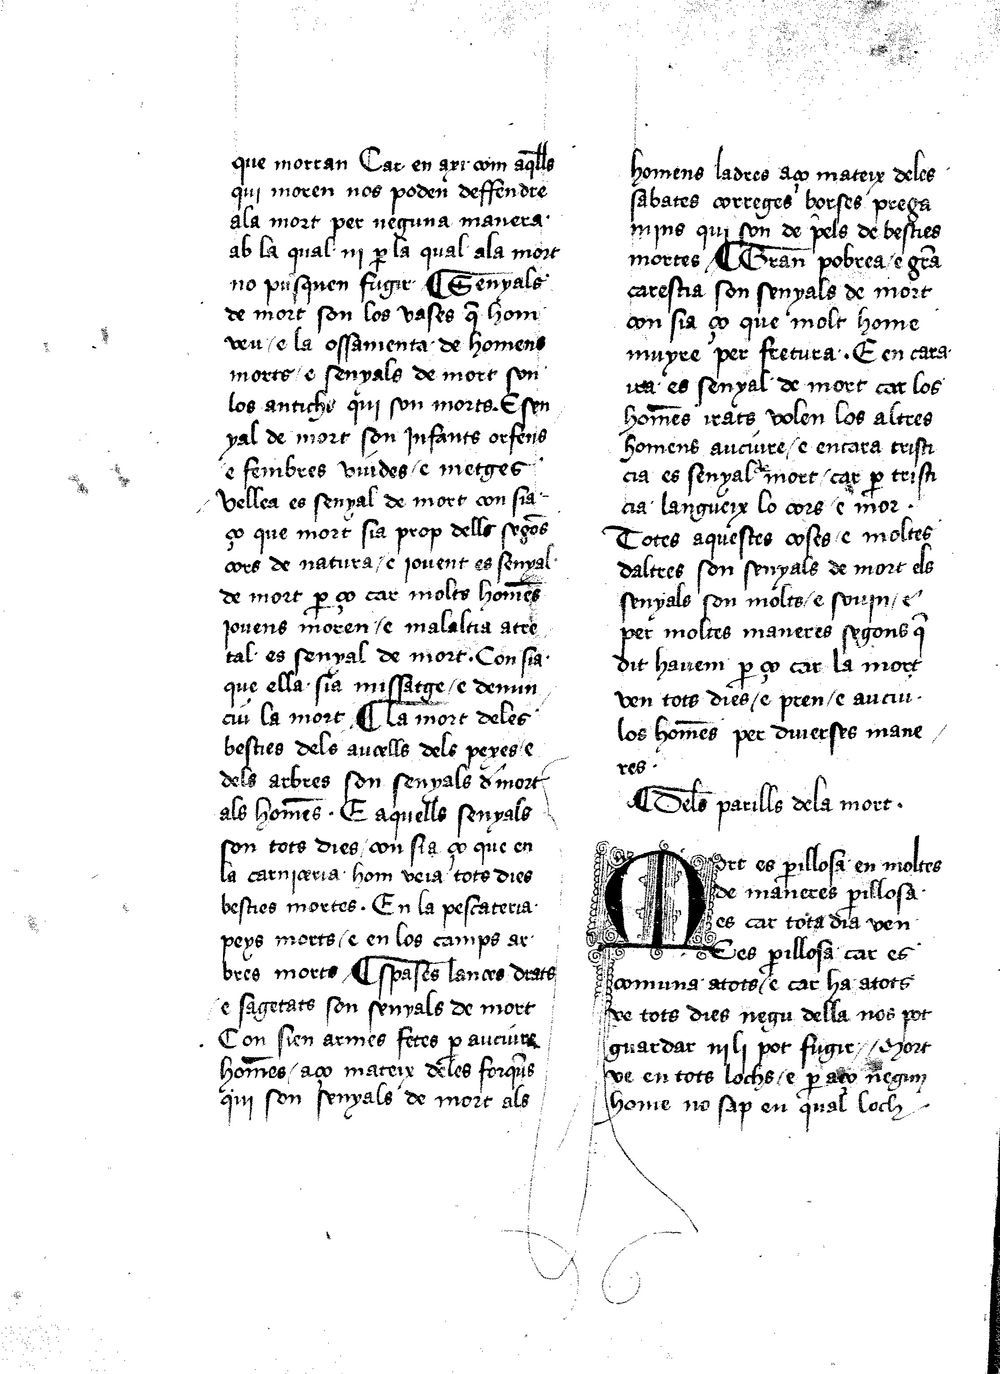 que morran Car en axi com aq̄lls
qui moren nos poden deffendre
ala mort per neguna manera
ab la qual ni ꝑ la qual ala mort
no pusquen fugir ¶ Senyals
de mort son los vases q̄ hom
veu / e la ossamenta de homens
morts / e senyals de mort son
los antichs qui son morts. E sen
yal de mort son jnfants orfens
e fembres viudes / e metges
vellea es senyal de mort con sia
ço que mort sia prop dells segōs
cors de natura / e jouent es senyal
de mort ꝑ ço car molts homēs
jouens moren / e malaltia atre
tal es senyal de mort. Con sia
que ella sia missatge / e denun
ciu la mort ¶ La mort deles
besties dels aucells dels pexes e
dels arbres son senyals d mort
als homēs. E aquells senyals
son tots dies / con sia ço que en
la carniceria hom veia tots dies
besties mortes. En la pescateria
peys morts / e en los camps ar
bres morts / ¶ Spases lances drats
e sagetats son senyals de mort
Con sien armes fetes ꝑ auciure
homēs / aço mateix deles forq̄s
qui son senyals de mort als
homens ladres aço mateix deles
sabates correges borses prega
mjns qui son de pels de besties
mortes / ¶ Gran pobrea / e grā
carestia son senyals de mort
con sia ço que molt home
muyre per fretura. E en cara
ira es senyal de mort car los
homēs irats volen los altres
homens auciure / e encara tristi
cia es senyal de mort / car ꝑ tristi
cia langueix lo cors e mor.
Totes aquestes coses / e moltes
daltres son senyals de mort els
senyals son molts / e souin / e
per moltes maneres segons q̄
dit hauem ꝑ ço car la mort
ven tots dies / e pren / e auciu
los homēs per diuerses mane
res.
¶ Dels parills dela mort.
Mort es ꝑillosa en moltes
de maneres ꝑillosa
es car tota dia ven
E es ꝑillosa car es
comuna atots / e car ha atots
ve tots dies negu della nos pot
guardar ni li pot fugir // Mort
ve en tots lochs / e ꝑ aço negun
home no sap en qual loch